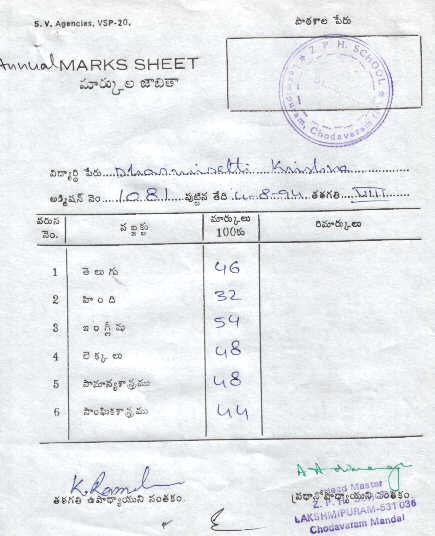 S. V. Agencies, VSP-20.
పాఠశాల పేరు
Annual MARKS SHEET
మార్కుల జాబితా
Z. P. H. SCHOOL
Chodavaram
విద్యార్థి పేరు Dharmisetti Krishna
అడ్మిషన్ నెం 1081 పుట్టిన తేది 4-8-94 తరగతి VIII
వరుస నెం. సబ్జక్టు మార్కులు 100కు రిమార్కులు
1 తెలుగు 46
2 హింది 32
3 ఇంగ్లీషు 54
4 లెక్కలు 48
5 సామాన్యశాస్త్రము 48
6 సాంఘికశాస్త్రము 44
తరగతి ఉపాధ్యాయుని సంతకం.
ప్రధానోపాధ్యాయుని సంతకం
Head Master
Z. P. H.
LAKSHMIPURAM-531 036
Chodavaram Mandal